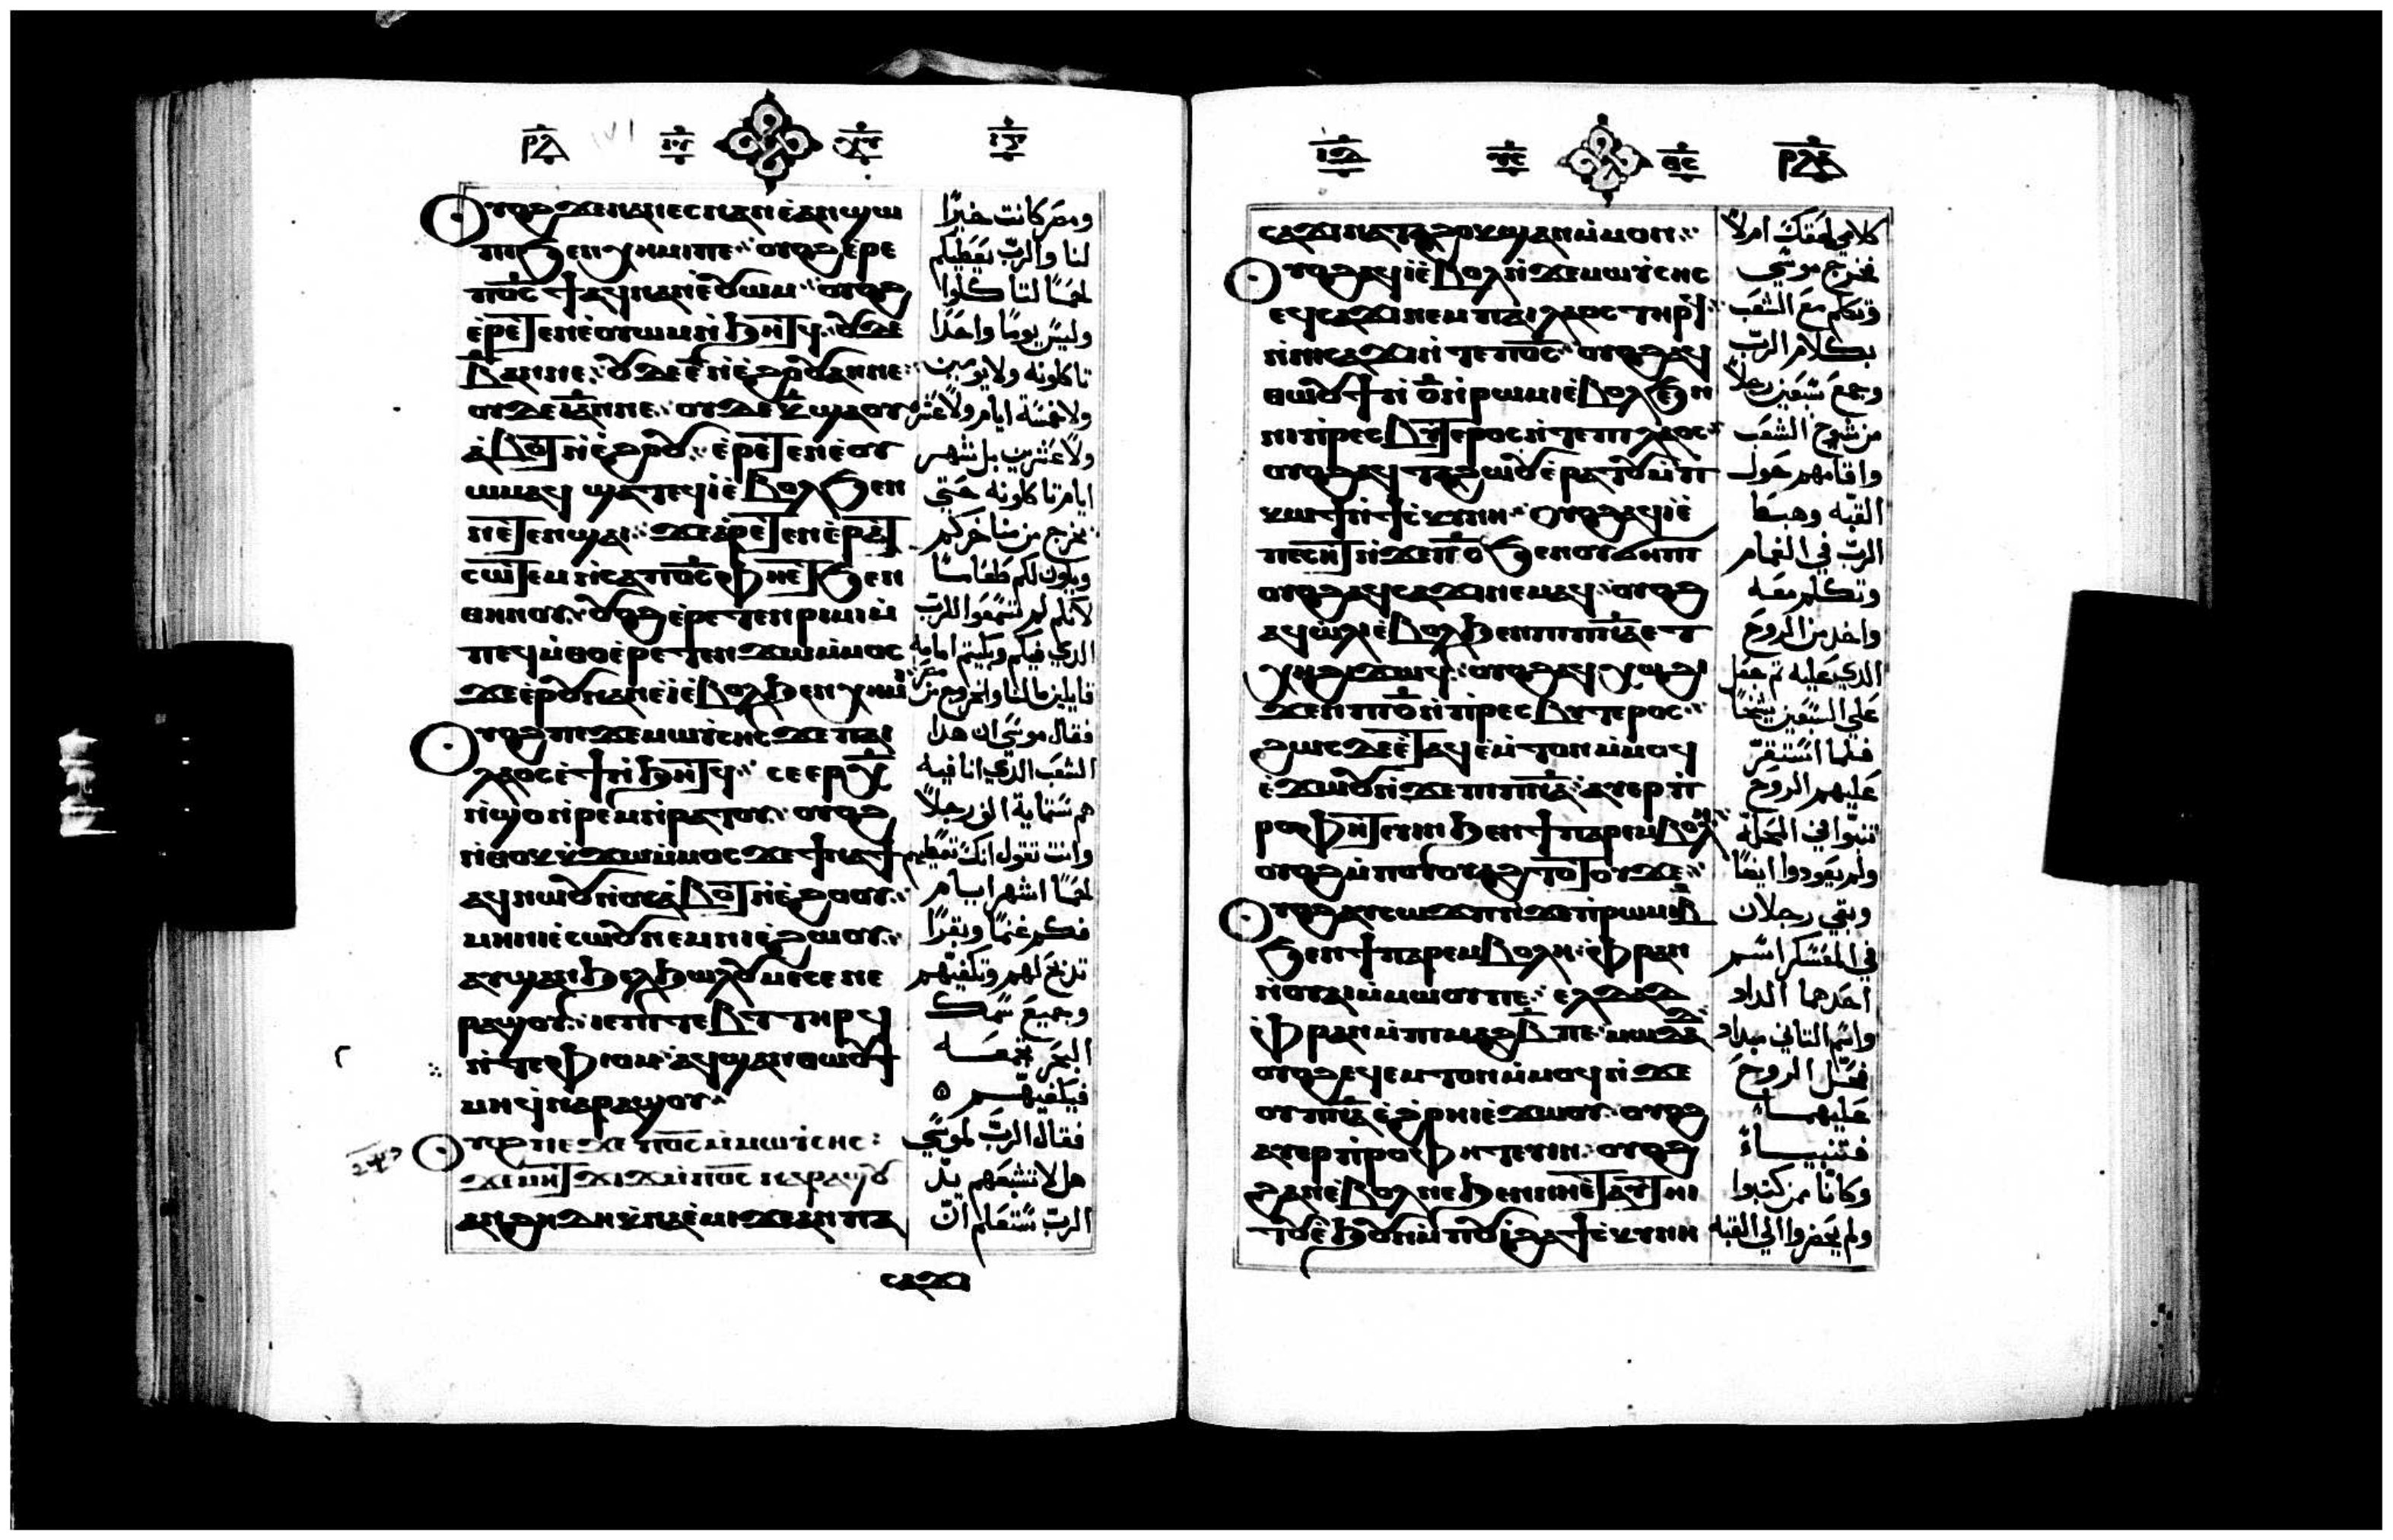 ⲟⲩⲟϩ ϫⲉ ⲛⲁⲛⲉⲥ ⲛⲁⲛ ⲉ̀ⲁⲛϣⲱ
ⲡⲓ ϧⲉⲛ ⲭⲏⲙⲓ ⲡⲉ ⲟⲩⲟϩ ⲉⲣⲉ
ⲡϭⲥ ϯ ⲁϥ ⲛⲁⲛ ⲉ̀ⲟⲩⲱⲙ ⲟⲩⲟϩ
ⲉⲣⲉⲧⲉⲛⲉ̀ⲟⲩⲱⲙ ⲛ̀ϧⲏⲧϥ ⲟⲩⲇⲉ
ⲟⲩⲇⲉ ⲉ̅ ⲛ̀ⲉ̀ϩⲟⲟⲩ ⲁⲛ ⲡⲉ
ⲟⲩⲇⲉ ⲓ̅ ⲁⲛ ⲡⲉ ⲟⲩⲇⲉ ⲕ̅ ϣⲁ ⲟⲩ
ⲁ̀ⲃⲟⲧ ⲛ̀ⲉ̀ϩⲟⲟⲩ ⲉ̀ⲣⲉⲧⲉⲛⲉ̀ⲟⲩ
ⲱⲙ ⲁϥ ϣⲁⲧⲉϥⲓ̀ ⲉ̀ⲃⲟⲗ ϧⲉⲛ
ⲛⲉⲧⲉⲛϣⲁⲓ ϫⲉ ⲁ̀ⲣⲉⲧⲉⲛⲉ̀ⲣⲁⲧ
ⲥⲱⲧⲉⲙ ⲛ̀ⲥⲁ ⲡϭⲥ ⲫⲏⲉⲧϧⲉⲛ
ⲑⲏⲛⲟⲩ ⲟⲩⲟϩ ⲉ̀ⲣⲉⲧⲉⲛⲣⲓⲙⲓ ⲙ̀
ⲡⲉϥⲙ̀ⲑⲟ ⲉ̀ⲣⲉⲧⲉⲛϫⲱ ⲙ̀ⲙⲟⲥ
ϫⲉ ⲉ̀ⲣⲟⲩ ⲛⲁⲛ ⲉ̀ⲓ̀ ⲉ̀ⲃⲟⲗ ϧⲉⲛ ⲭⲏⲙⲓ
ⲟⲩⲟϩ ⲡⲉϫⲉ ⲙⲱⲩⲥⲏⲥ ϫⲉ ⲡⲁⲓ
ⲗⲁⲟⲥ ⲉ̀ϯ ⲛ̀ϧⲏⲧϥ ⲥⲉⲉⲣ ⲭ̅
ⲛ̀ϣⲟ ⲛ̀ⲣⲉⲙⲛ̀ⲣⲁⲧⲟⲩ ⲟⲩⲟϩ
ⲛ̀ⲑⲟⲕ ⲕ̀ϫⲱ ⲙ̀ⲙⲟⲥ ϫⲉ ϯⲛⲁϯ
ⲁϥ ⲛⲱⲟⲩ ⲛ̀ⲟⲩⲁ̀ⲃⲟⲧ ⲛ̀ⲉ̀ϩⲟⲟⲩ
ⲙⲏ ⲛⲓⲉⲥⲱⲟⲩ ⲛⲉⲙ ⲛⲓⲉ̀ϩⲱⲟⲩ
ⲁⲩϣⲁⲛϧⲉⲗϧⲱⲗⲟⲩ ⲙⲉⲥⲉⲛⲉ
ⲣⲁϣⲟⲩ ⲓⲉ ⲡⲓⲧⲉⲃⲧ ⲧⲏⲣϥ
ⲛ̀ⲧⲉ ⲫⲓⲟⲙ ⲁϥϣⲁⲛⲑⲱⲟⲩϯ
ⲙⲏ ϥⲛⲁⲣⲁϣⲟⲩ
ⲟⲩⲟϩ ⲡⲉϫⲉ ⲡϭⲥ ⲙ̀ⲙⲱⲩⲥⲏⲥ
ϫⲉ ⲙⲏ ⲧϫⲓϫ ⲙ̀ⲡϭⲥ ⲛⲁⲣⲁϣⲟⲩ
ⲁⲛ ϩⲏⲇⲏ ⲭⲛⲁⲉ̀ⲙⲓ ϫⲉ ⲁⲛ ⲡⲁ
ⲥⲁϫⲓ
ومصر كانت خيرًا
لنا والرب يعطيكم
لحمًا لتاكلوا
وليس يومًا واحدًا
تاكلونه ولا يومين
ولا خمسة ايام ولا عشره
ولا عشرين بل شهر
ايام تاكلونه حتي
يخرج من مناخركم
لانكم لم تسمعوا للرب
الدي فيكم وبكيتم امامه
قايلين ما لنا والخروج من مصر
فقال موسي ان هدا
الشعب الدي انا فيه
هم ستماية الف رجلًا
وانت تقول انك تعطيهم
لحمًا شهر ايام
غنمًا وبقرًا
تدبح لهم وتكفيهم
وجميع سمك
البحر يجمعه
فيكفيهم
فقال الرب لموسي
هل لا تشبعهم يد
الرب ستعلم ان
ⲥⲁϫⲓ ⲛⲁⲧⲁϩⲟⲕ ϣⲁⲛ ⲙ̀ⲙⲟⲛ
ⲟⲩⲟϩ ⲁϥⲓ̀ ⲉ̀ⲃⲟⲗ ⲛ̀ϫⲉ ⲙⲱⲩⲥⲏⲥ
ⲉϥⲥⲁϫⲓ ⲛⲉⲙ ⲡⲁⲓⲗⲁⲟⲥ ⲧⲏⲣϥ
ⲛ̀ⲛⲓⲥⲁϫⲓ ⲛ̀ⲧⲉ ⲡϭⲥ ⲟⲩⲟϩ ⲁϥ
ⲑⲱⲟⲩϯ ⲛ̀ ⲟ̅ ⲛ̀ⲣⲱⲙⲓ ⲉ̀ⲃⲟⲗ ϧⲉⲛ
ⲛⲓⲡⲣⲉⲥⲃⲩⲧⲉⲣⲟⲥ ⲛ̀ⲧⲉ ⲡⲗⲁⲟⲥ
ⲟⲩⲟϩ ⲁϥⲧⲁϩⲱⲟⲩ ⲉ̀ⲣⲁⲧⲟⲩ ⲙ̀ⲡ
ⲕⲱϯ ⲛ̀ϯⲥⲕⲩⲛⲏ ⲟⲩⲟϩ ⲁϥⲓ̀ ⲉ̀
ⲡⲉⲥⲏⲧ ⲛ̀ϫⲉ ⲡϭⲥ ϧⲉⲛ ⲟⲩϭⲏⲡⲓ
ⲟⲩⲟϩ ⲁϥⲥⲁϫⲓ ⲛⲉⲙⲁϥ ⲟⲩⲟϩ
ⲁϥⲱ̀ⲗⲓ ⲉ̀ⲃⲟⲗ ϧⲉⲛ ⲡⲓⲡⲛⲁ ⲉⲧ
ⲭⲏ ϩⲓϫⲱϥ ⲟⲩⲟϩ ⲁϥⲭⲁϥ ϩⲓ
ϫⲉⲛ ⲡⲓ ⲟ̅ ⲛ̀ⲡⲣⲉⲥⲃⲩⲧⲉⲣⲟⲥ
ϩⲱⲥ ⲇⲉ ⲉⲧⲁϥⲉⲙⲧⲟⲛ ⲙ̀ⲙⲟϥ
ⲉ̀ϫⲱⲟⲩ ⲛ̀ϫⲉ ⲡⲓⲡⲛⲁ ⲁⲩⲉⲣⲡ̀
ⲣⲟⲫⲏⲧⲉⲩⲓⲛ ϧⲉⲛ ϯⲡⲁⲣⲉⲙⲃⲟⲗⲏ
ⲟⲩⲟϩ ⲙ̀ⲡⲟⲩⲟⲩⲁϩⲧⲟⲧⲟⲩ ϫⲉ
ⲟⲩⲟϩ ⲁⲩⲥⲱϫⲡ ⲛ̀ϫⲉ ⲡ̀ⲣⲱⲙⲓ ⲃ̅
ϧⲉⲛ ϯⲡⲁⲣⲉⲙⲃⲟⲗⲏ ⲫ̀ⲣⲁⲛ
ⲛ̀ⲟⲩⲁⲓ ⲙ̀ⲙⲱⲟⲩ ⲡⲉ ⲉⲗⲇⲁⲇ
ⲫ̀ⲣⲁⲛ ⲙ̀ⲡⲓⲙⲁϩ ⲃ̅ ⲡⲉ ⲙⲱⲇⲁⲇ
ⲟⲩⲟϩ ⲉϥⲉⲙⲧⲟⲛ ⲙ̀ⲙⲟϥ ⲛ̀ϫⲉ
ⲟⲩⲡⲛⲁ ⲉ̀ϩⲣⲏⲓ ⲉ̀ϫⲱⲟⲩ ⲟⲩⲟϩ
ⲁⲩⲉⲣⲡ̀ⲣⲟⲫⲏⲧⲉⲩⲓⲛ ⲟⲩⲟϩ
ϩⲁⲛⲉ̀ⲃⲟⲗ ⲛⲉ ϧⲉⲛ ⲛⲏⲉⲧⲁⲩⲧⲏⲓ
ⲧⲟⲩ ⲉ̀ϧⲟⲩⲛ ⲙ̀ⲡⲟⲩⲓ̀ ϩⲁ ϯⲥⲕⲩⲛⲏ
كلامي يلحقك ام لا
فخرج موسي
وتكلم مع الشعب
بكلام الرب
وجمع سبعين رجلًا
من شيوخ الشعب
واقامهم حول
القبه وهبط
الرب في الغمام
وتكلم معه
واخد من الروح
الدي عليه ثم جعل
علي السبعين شيخًا
فلما استقر
عليهم الروح
تنبوا في المحلة
ولم يعودوا ايضًا
وبقي رجلان
في المعسكر اسم
احدهما الداد
واسم التاني ميداد
فحل الروح
عليهما
فتنبياء
وكانا ممن كتبوا
ولم يحضروا الي القبه